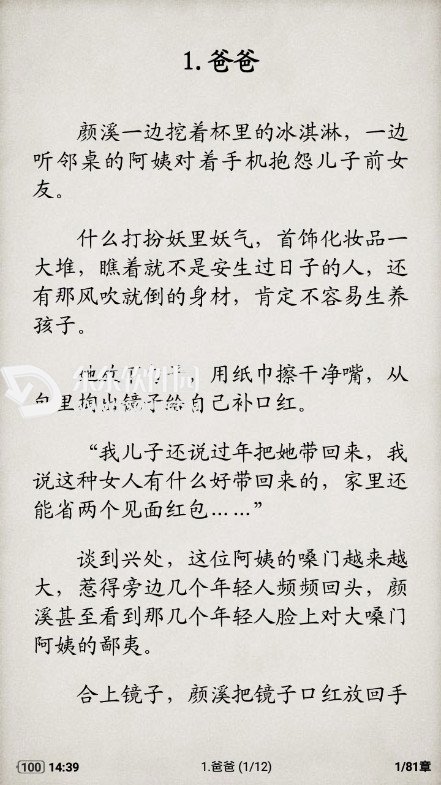 1.爸爸
颜溪一边挖着杯里的冰淇淋，一边
听邻桌的阿姨对着手机抱怨儿子前女
友。
什么打扮妖里妖气，首饰化妆品一
大堆，瞧着就不是安生过日子的人，还
有那风吹就倒的身材，肯定不容易生养
孩子。
，用纸巾擦干净嘴，从
包里掏出镜子给自己补口红。
“我儿子还说过年把她带回来，我
说这种女人有什么好带回来的，家里还
能省两个见面红包……”
谈到兴处，这位阿姨的嗓门越来越
大，惹得旁边几个年轻人频频回头，颜
溪甚至看到那几个年轻人脸上对大嗓门
阿姨的鄙夷。
合上镜子，颜溪把镜子口红放回手
100 14:39
1.爸爸 (1/12)
1/81章